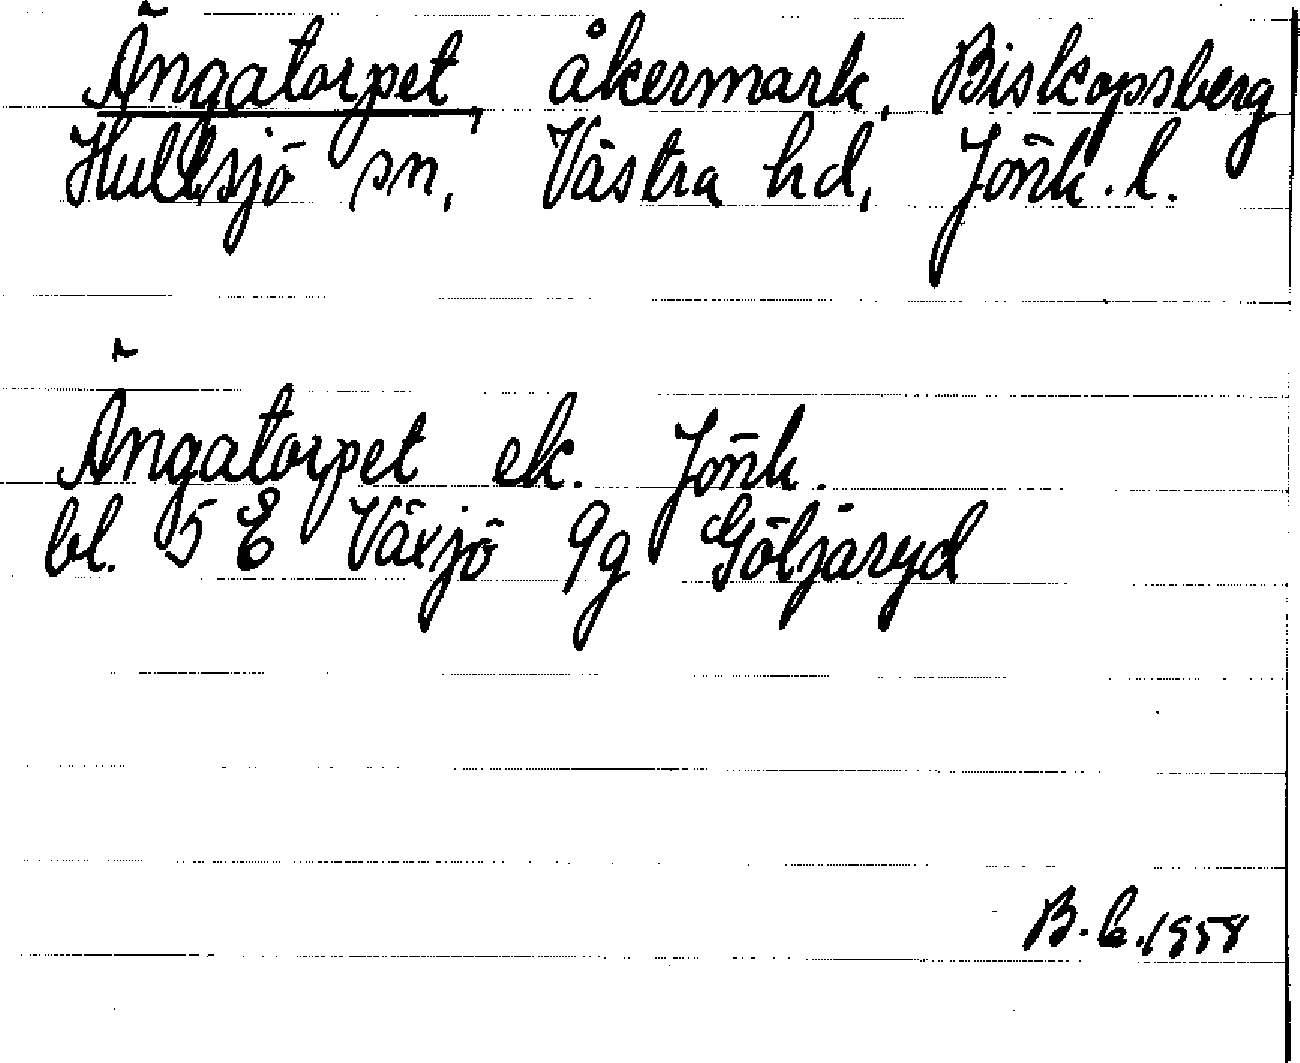 Ängatorpet, åkermark, Biskopsberg
Hultsjö sn, Västra hd, Jönk. l.
Ängatorpet ek. Jönk.
bl. 5 E Växjö 9g Göljaryd
B.E. 1958